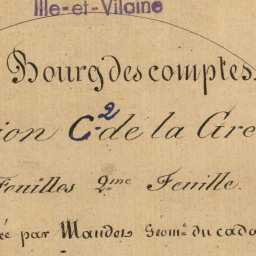 Ille-et-Vilaine
Bourg des comptes.
ion C.2 de la Gre
Feuilles 2me Feuille.
ée par Mandet Géomc. du cada